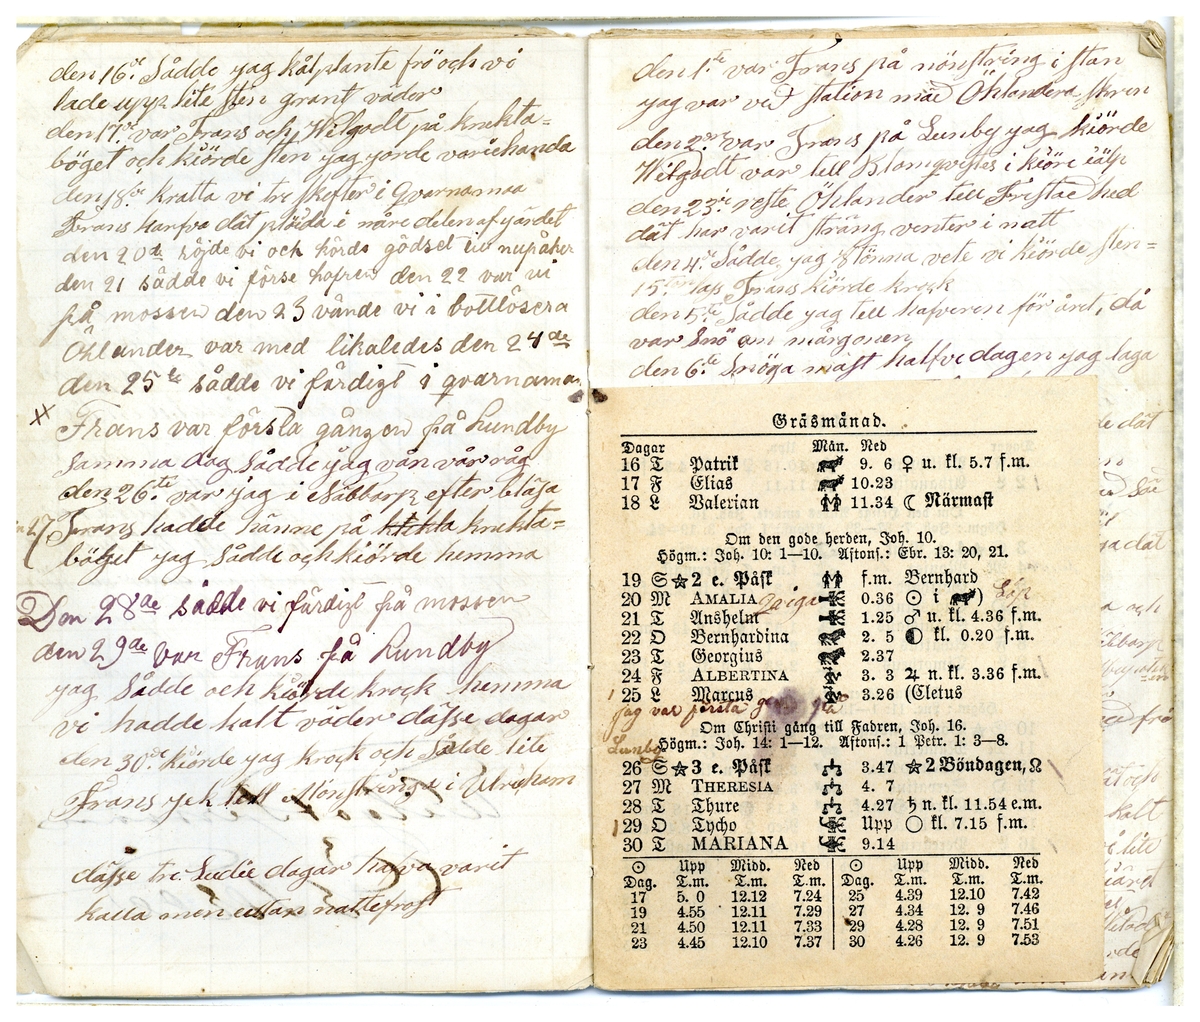 den 16de Sådde jag kålplante frö och vi
lade upp lite sten grant väder
den 17de var Frans och Wilgodt på knekta=
böget och kiörde sten jag jorde varichanda
den 18de kratta vi tre skefter i qvarnamaa
Frans harfva dät plöida i nåre delen af järdet
den 20de höjde vi och körde gödsel
den 21 sådde vi förse hafren den 22 var vi
på mossen den 23 vände vi i bottlösera
Öhlander var med likaledes den 24de
den 25te sådde vi färdigt i qvarnamaa
Frans var första gången på Lundby
samma dag Sådde jag vån vår råg
den 26te var jag i Nabbarp efter
27 Frans hadde hänne på knekta=
böget jag Sådde och kiörde hemma
Den 28de sådde vi färdigt på mossen
den 29de var Frans på Lundby
jag Sådde och kiörde krock hemma
vi hadde kalt väder dässe dagar
den 30de kiörde jag krock och Sådde lite
Frans gek till Mönstringa i Ulricham
dässe tre sudie dagar hava varit
kalla men uttan nattefrost
den 1ste var Frans på mönstring i stan
jag var ved station mäd Öhlandera skrin
den 2dre var Frans på Lunby jag kiörde
Wilgodt var till Blomqvistes i kiöre iälp
den 23de reste Öhlander till Fristad hed
dät har varit sträng venter i natt
den 4de Sådde jag vete vi kiörde sten=
15 las Frans kiörde krock
den 5te Sådde jag till hafveren för ärt, då
var Snö om mårgonen
den 6te Snöga mäst halfve dagen jag laga
Gräsmånad.
Dagar Mån. Ned
16 T Patrik 9. 6 ♀ u. kl. 5.7 f.m.
17 F Elias 10.23
18 L Valerian 11.34 ☾ Närmast
Om den gode herden, Joh. 10.
Högm.: Joh. 10: 1—10. Aftons.: Ebr. 13: 20, 21.
19 S ☆ 2 e. Påsk f.m. Bernhard
20 M AMALIA 0.36 ☉ i )
21 T Anshelm 1.25 ♂ u. kl. 4.36 f.m.
22 O Bernhardina 2. 5 ◐ kl. 0.20 f.m.
23 T Georgius 2.37
24 F ALBERTINA 3. 3 ♃ n. kl. 3.36 f.m.
25 L Marcus 3.26 (Cletus
jag var första på
Lunby
Om Christi gång till Fadren, Joh. 16.
Högm.: Joh. 14: 1—12. Aftons.: 1 Petr. 1: 3—8.
26 S ☆ 3 e. Påsk 3.47 ☆ 2 Böndagen, ☊
27 M THERESIA 4. 7
28 T Thure 4.27 ♄ n. kl. 11.54 e.m.
29 O Tycho Upp ○ kl. 7.15 f.m.
30 T MARIANA 9.14
☉ Upp Midd. Ned ☉ Upp Midd. Ned
Dag. T.m. T.m. T.m. Dag. T.m. T.m. T.m.
17 5. 0 12.12 7.24 25 4.39 12.10 7.42
19 4.55 12.11 7.29 27 4.34 12. 9 7.46
21 4.50 12.11 7.33 29 4.28 12. 9 7.51
23 4.45 12.10 7.37 30 4.26 12. 9 7.53